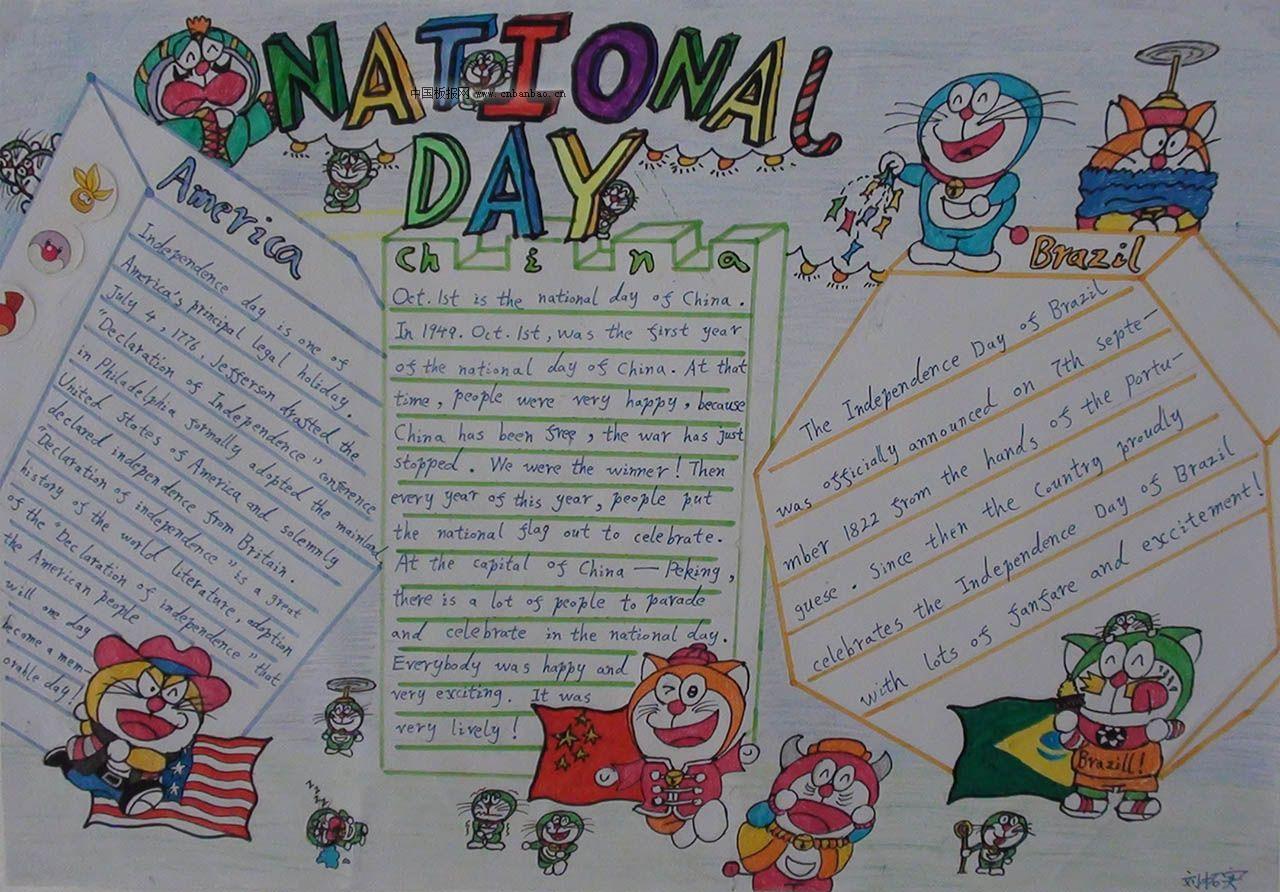 NATIONAL
中国板报网 www.cnbanbao.cn
DAY
America
Independence day is one of
America's principal legal holiday.
July 4, 1776, Jefferson drafted the
"Declaration of Independence" conference
in Philadelphia formally adopted the mainland
United States of America and solemnly
declared independence from Britain.
"Declaration of independence" is a great
history of the world literature, adoption
of the "Declaration of independence" that
the American people
will one day
become a mem-
orable day!
China
Oct. 1st is the national day of China.
In 1949. Oct. 1st, was the first year
of the national day of China. At that
time, people were very happy, because
China has been free, the war has just
stopped. We were the winner! Then
every year of this year, people put
the national flag out to celebrate.
At the capital of China — Peking,
there is a lot of people to parade
and celebrate in the national day.
Everybody was happy and
very exciting. It was
very lively!
Brazil
The Independence Day of Brazil
was officially announced on 7th Septe-
mber 1822 from the hands of the Portu-
guese. Since then the Country proudly
celebrates the Independence Day of Brazil
with lots of fanfare and excitement!
Brazill!
zzzz